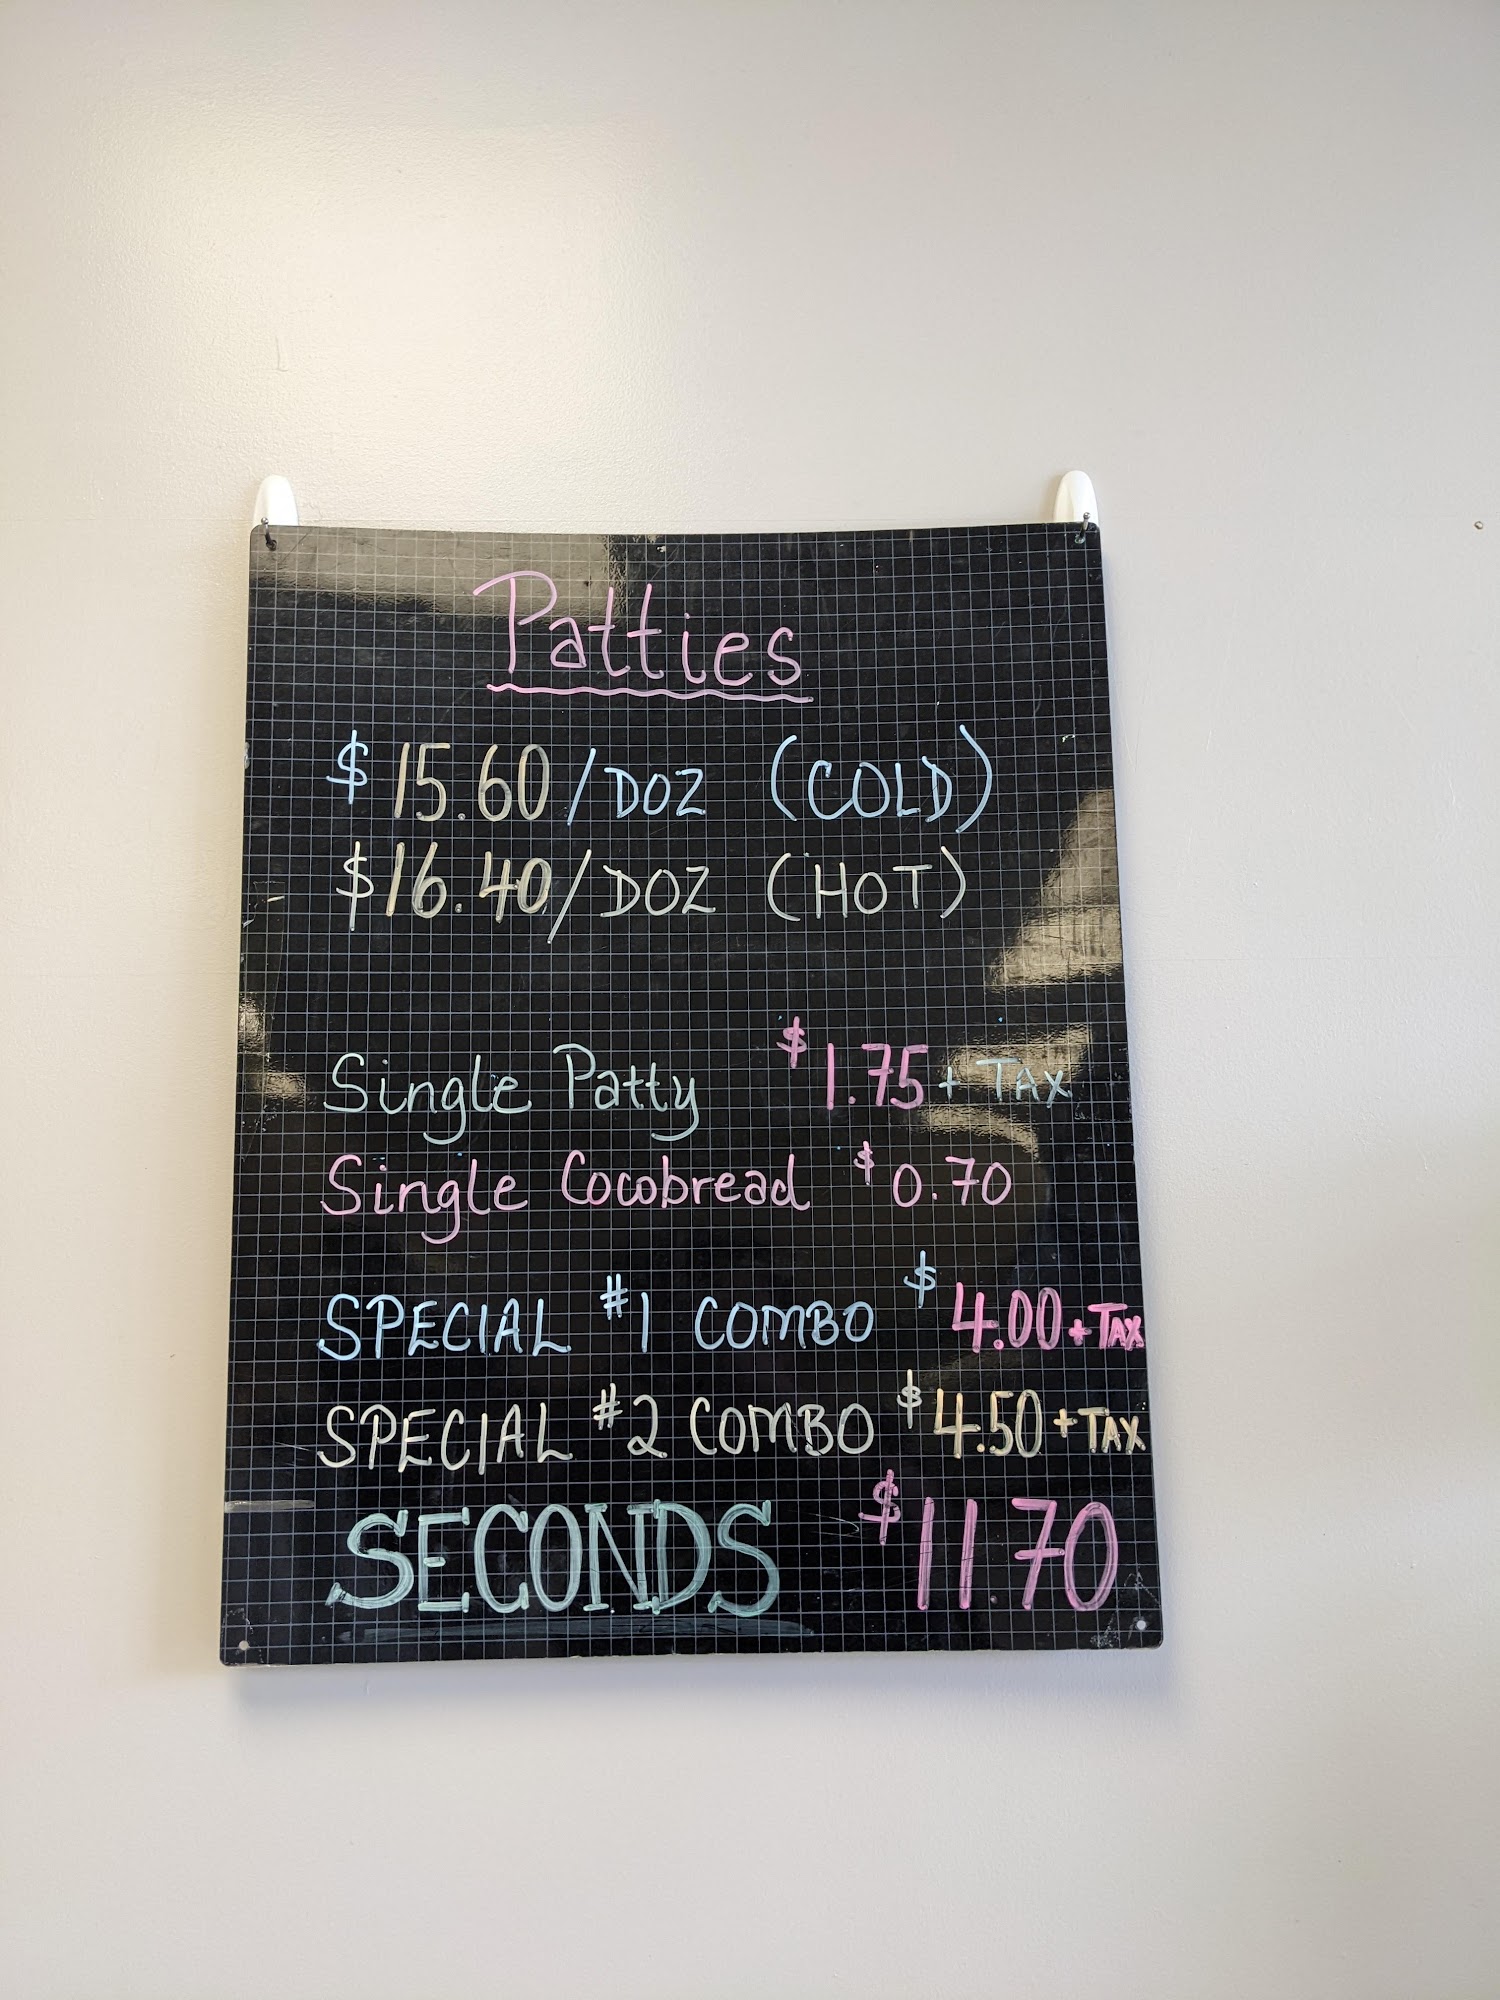 Patties
$15.60/DOZ (COLD)
$16.40/DOZ (HOT)
Single Patty $1.75 + TAX
Single Cocobread $0.70
SPECIAL #1 COMBO $4.00 + TAX
SPECIAL #2 COMBO $4.50 + TAX
SECONDS $11.70